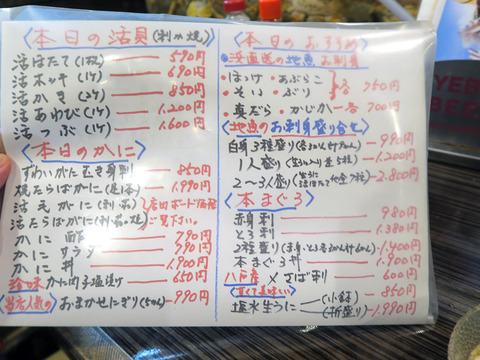 <本日の活貝(刺か焼)>
活ほたて(1枚) 590円
活ホッキ(1ケ) 690円
活かき(2ケ) 850円
活あわび(1ケ) 1.200円
活つぶ(1ケ) 1.600円
<本日のかに>
ずわいがにむき身刺 850円
焼たらばがに 1.990円
活毛がに
活たらばがに
店内ボード価格
ご覧下さい。
かに酢 790円
かにサラダ 790円
かに丼 1.900円
珍味かに内子塩漬け 650円
当店人気の おまかせにぎり 990円
<本日のおすすめ>
浜直送の地魚お刺身
・ほっけ・あぶらこ
・そい・ぶり
各 750円
・真だら・かじか 各 700円
<地魚のお刺身盛り合せ>
白身3種盛り 990円
1人盛り 1.200円
2〜3人盛り 2.800円
<本まぐろ>
赤身刺 980円
とろ刺 1.380円
2種盛り 1.400円
本まぐろ丼 1.900円
八戸産 〆さば刺 600円
<甘くて美味しい>
塩水生うに (小鉢) 850円
(折盛り) 1.990円
YEB
BEE